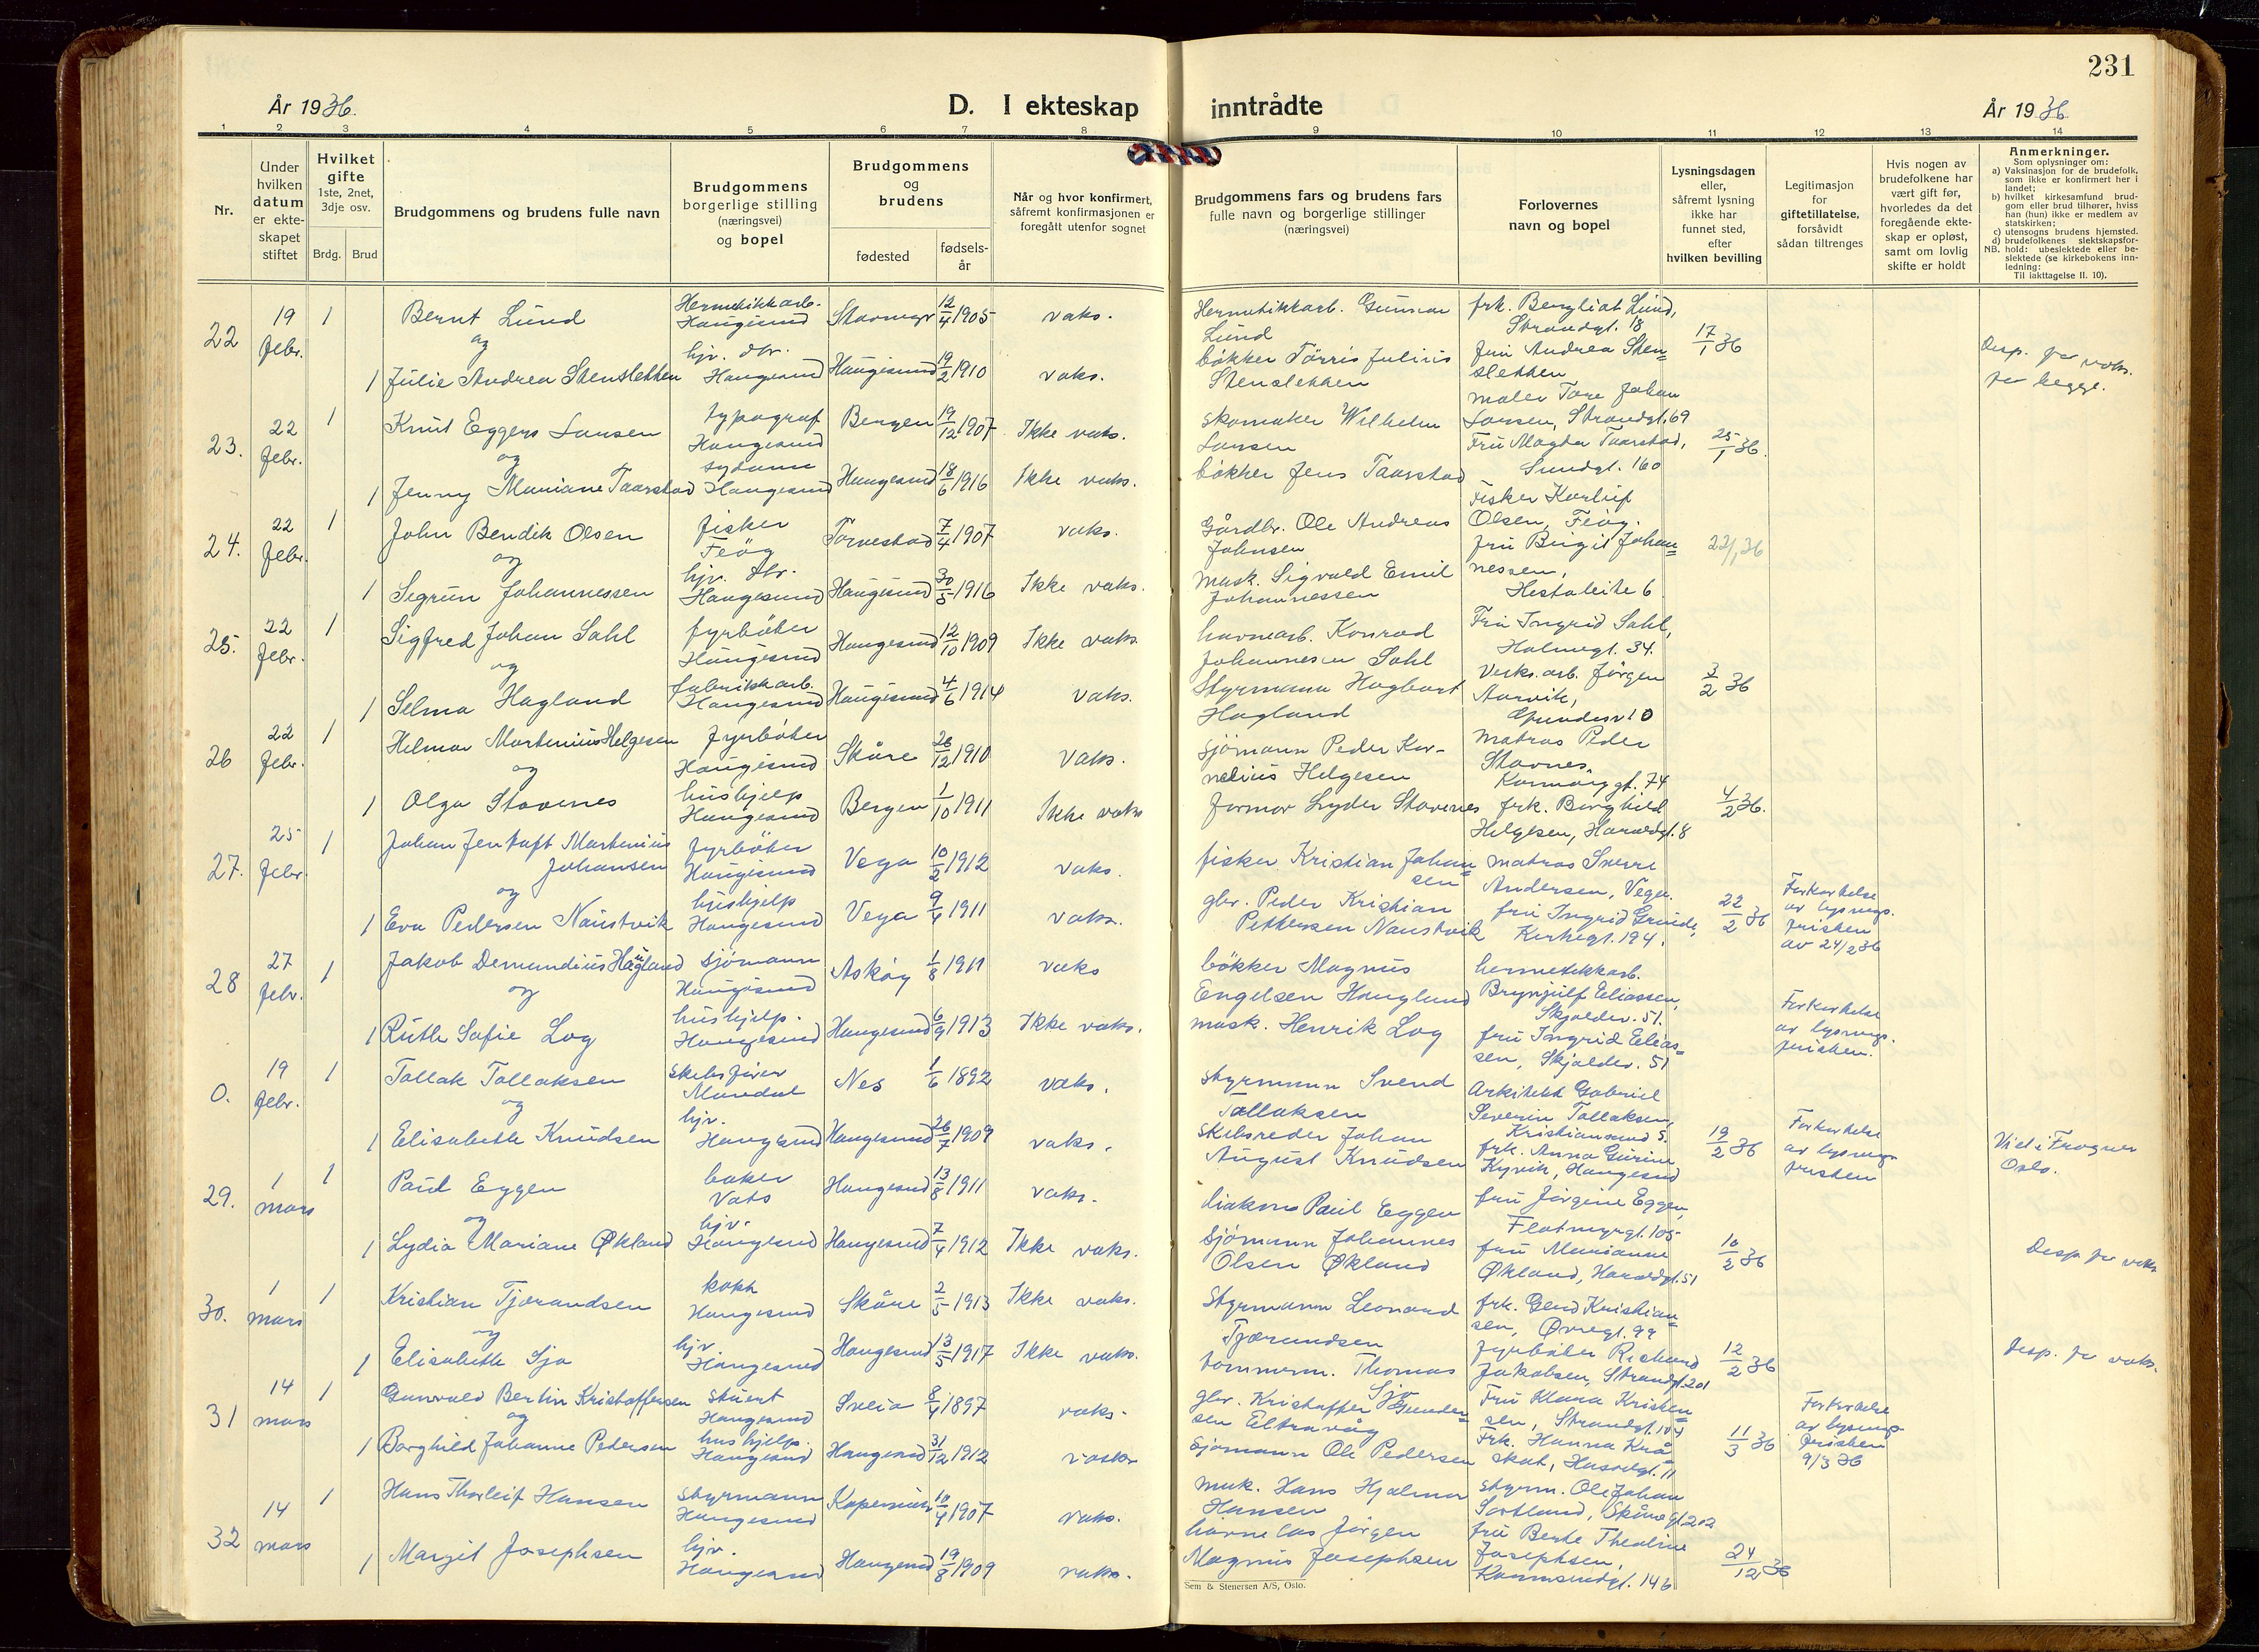 231
År 1936.
D. I ekteskap inntrådte
År 1936
1 2 3 4 5 6 7 8 9 10 11 12 13 14
Nr.
Under hvilken datum er ekteskapet stiftet
Hvilket gifte
1ste, 2net, 3dje osv.
Brdg. Brud
Brudgommens og brudens fulle navn
Brudgommens borgerlige stilling (næringsvei) og bopel
Brudgommens og brudens
fødested
fødselsår
Når og hvor konfirmert, såfremt konfirmasjonen er foregått utenfor sognet
Brudgommens fars og brudens fars fulle navn og borgerlige stillinger (næringsvei)
Forlovernes navn og bopel
Lysningsdagen eller, såfremt lysning ikke har funnet sted, efter hvilken bevilling
Legitimasjon for giftetillatelse, forsåvidt sådan tiltrenges
Hvis nogen av brudefolkene har vært gift før, hvorledes da det foregående ekteskap er opløst, samt om lovlig skifte er holdt
Anmerkninger.
Som oplysninger om:
a) Vaksinasjon for de brudefolk, som ikke er konfirmert her i landet;
b) hvilket kirkesamfund brudgom eller brud tilhører, hviss han (hun) ikke er medlem av statskirken;
c) utensogns brudens hjemsted.
d) brudefolkenes slektskapsforhold: ubeslektede eller beslektede (se kirkebokens innledning:
NB. Til iakttagelse II. 10).
22 19 febr. 1 Bernt Lund Hermetikkarb. Haugesund Stavanger 12/4 1905 vaks. Hermetikkarb. Gunnar Lund frk. Bergliot Lund, Strandgt. 18 17/1 36
og
1 Julie Andrea Stensletten hjv. dtr. Haugesund Haugesund 19/2 1910 vaks. bøkker Tørris Julius Stensletten fru Andrea Stensletten Desp. for vaks. for begge.
23. 22 febr. 1 Knut Eggers Larsen typograf Haugesund Bergen 19/12 1907 Ikke vaks. skomaker Wilhelm Larsen maler Tore Johan Larsen, Strandgt. 69 25/1 36.
og
1 Jenny Mariane Taarstad sydame Haugesund Haugesund 18/6 1916 Ikke vaks. bøkker Jens Taarstad Fru Magda Taarstad, Sundgt. 160
24. 22 febr. 1 John Bendik Olsen fisker Feøy Torvestad 7/4 1907 vaks. Gårdbr. Ole Andreas Johnsen Fisker Karluf Olsen, Feøy. 22/1 36
og
1 Sigrun Johannessen hjv. dtr. Haugesund Haugesund 30/5 1916 Ikke vaks. mask. Sigvald Emil Johannessen fru Birgit Johannessen, Hestaleite 6
25. 22 febr. 1 Sigfred Johan Sahl fyrbøter Haugesund Haugesund 12/10 1909 Ikke vaks. havnearb. Konrad Johannesen Sahl Fru Ingrid Sahl, Holmegt. 34.
og
1 Selma Hagland fabrikkarb. Haugesund Haugesund 4/6 1914 vaks. Styrmann Hagbart Hagland Verks.arb. Jørgen Aarvik, 3/2 36
26 22 febr. 1 Helmar Martinius Helgesen fyrbøter Haugesund Skåre 26/12 1910 Vaks. sjømann Peder Kornelius Helgesen matros Peder Stavnes, Karmøygt. 74
og
1 Olga Stavenes hushjelp Haugesund Bergen 1/10 1911 Ikke vaks formor Lyder Stavenes frk. Borghild Helgesen, Haraldgt. 8 4/2 36.
27. 25 febr. 1 Johan Jentoft Martinius Johansen fyrbøter Haugesund Vega 10/2 1912 vaks. fisker Kristian Johansen matros Sverre Andersen, Vega.
og
1 Eva Pedersen Naustvik hushjelp Haugesund Vega 9/4 1911 vaks. gbr. Peder Kristian Pettersen Naustvik fru Ingrid Grinde, Kirkegt. 194. 22/2 36 Forkortelse av lysnings. fristen av 24/2 36
28 27 febr. 1 Jakob Demundius Haugland sjømann Haugesund Askøy 1/8 1911 vaks bøkker Magnus Engelsen Haugland hermetikkarb. Brynjulf Eliassen, Skjoldav. 51.
og
1 Ruth Sofie Log hushjelp. Haugesund Haugesund 6/9 1913 Ikke vaks. mask. Henrik Log fru Ingrid Eliassen, Skjoldav. 51 Forkortelse av lysnings. fristen.
0. 19 febr. 1 Tallak Tallaksen skibsfører Mandal Nes 1/6 1892 vaks. styrmann Svend Tallaksen Arkitekt Gabriel Severin Tallaksen, Kristiansund S.
og
1 Elisabeth Knudsen hjv. Haugesund Haugesund 26/7 1909 vaks. skibsreder Johan August Knudsen frk. Anna Gurine Kyvik, Haugesund 19/2 36 Forkortelse av lysnings fristen Viet i Frogner Oslo.
29. 1 mars 1 Paul Eggen baker Vats Haugesund 13/8 1911 vaks. diakons Paul Eggen fru Jørgine Eggen, Flotmyrgt. 105
og
1 Lydia Mariane Økland hjv. Haugesund Haugesund 7/4 1912 Ikke vaks. Sjømann Johannes Olsen Økland fru Marianne Økland, Haraldgt. 51 10/2 36 Desp. for vaks
30. 1 mars 1 Kristian Tjørandsen kokk Haugesund Skåre 2/5 1913 Ikke vaks. Styrmann Leonard Tjørandsen frk. Kristiansen, Øvregt. 99
og
1 Elisabeth Sjo hjv Haugesund Haugesund 13/5 1917 Ikke vaks. tømmerm. Thomas Sjo fyrbøter Rickard Jakobsen, Strandgt. 201 12/2 36 Desp. for vaks.
31 14 mars 1 Gunvald Bertin Kristoffersen stuert Haugesund Sveio 8/4 1897 vaks. gbr. Kristoffer Gundersen Eltravåg Fru Klara Kristensen, Strandgt. 104
og
1 Borghild Johanne Pedersen hushjelp. Haugesund Haugesund 31/12 1912 vaks Sjømann Ole Pedersen Frk. Hanna Kråskot, Hasselgt. 11 11/3 36 Forkortelse av lysnings fristen 9/3 36
32 14 mars 1 Hans Thorleif Hansen styrmann Haugesund Kopervik 10/4 1907 vaks. mask. Hans Hjalmar Hansen styrm. Ole Johan Sortland, Skåregt. 202
1 Margit Josephsen hjv. Haugesund Haugesund 19/8 1909 vaks. havnelos Jørgen Magnus Josephsen fru Berte Theoline Josephsen, Karmsundgt. 146 24/12 36
Sem & Stenersen A/S, Oslo.